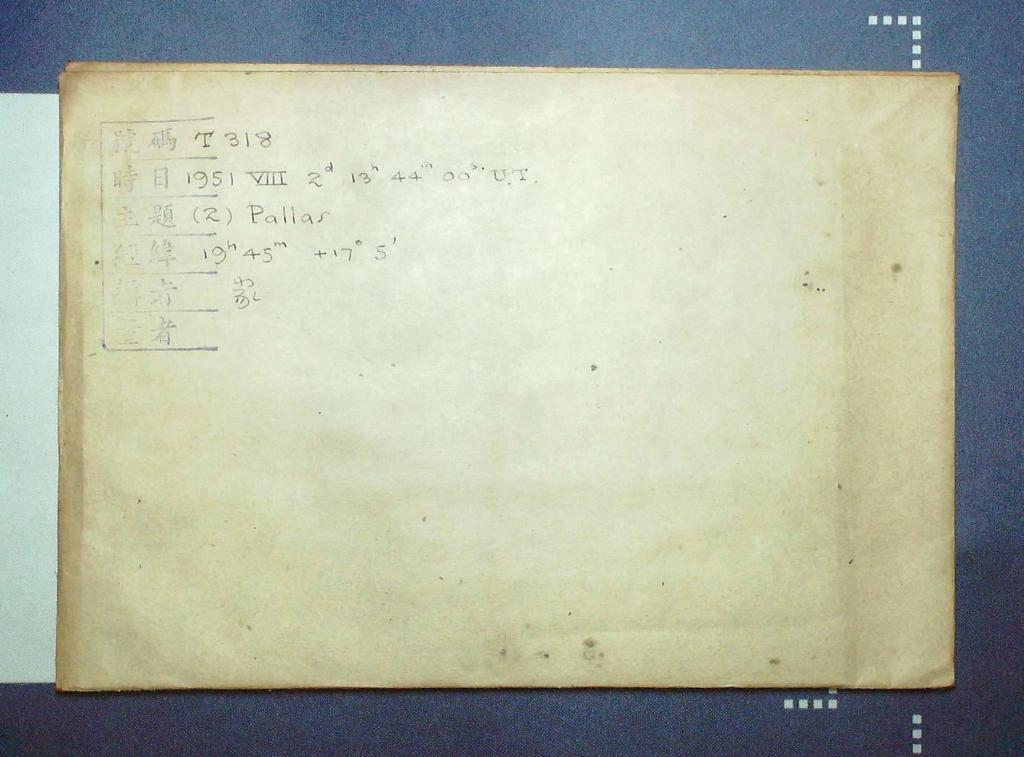 號碼 T 318
時日 1951 VIII 2ᵈ 13ʰ 44ᵐ 00ˢ· U.T.
主題 (2) Pallas
經緯 19ʰ 45ᵐ +17° 5'
者
者